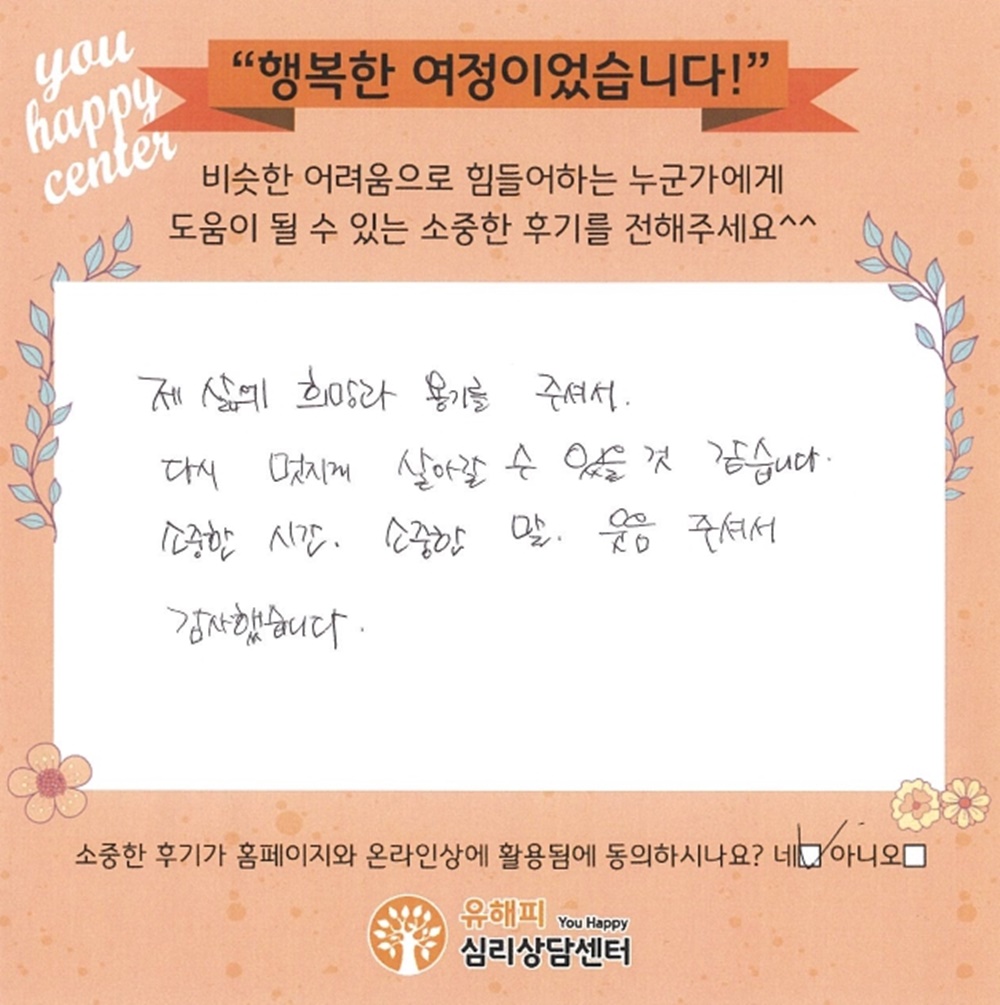 you
happy
center
“행복한 여정이었습니다!”
비슷한 어려움으로 힘들어하는 누군가에게
도움이 될 수 있는 소중한 후기를 전해주세요^^
제 삶에 희망과 용기를 주셔서.
다시 멋지게 살아갈 수 있을 것 같습니다.
소중한 시간. 소중한 말. 웃음 주셔서
감사했습니다.
소중한 후기가 홈페이지와 온라인상에 활용됨에 동의하시나요? 네☑ 아니오☐
유해피 You Happy
심리상담센터